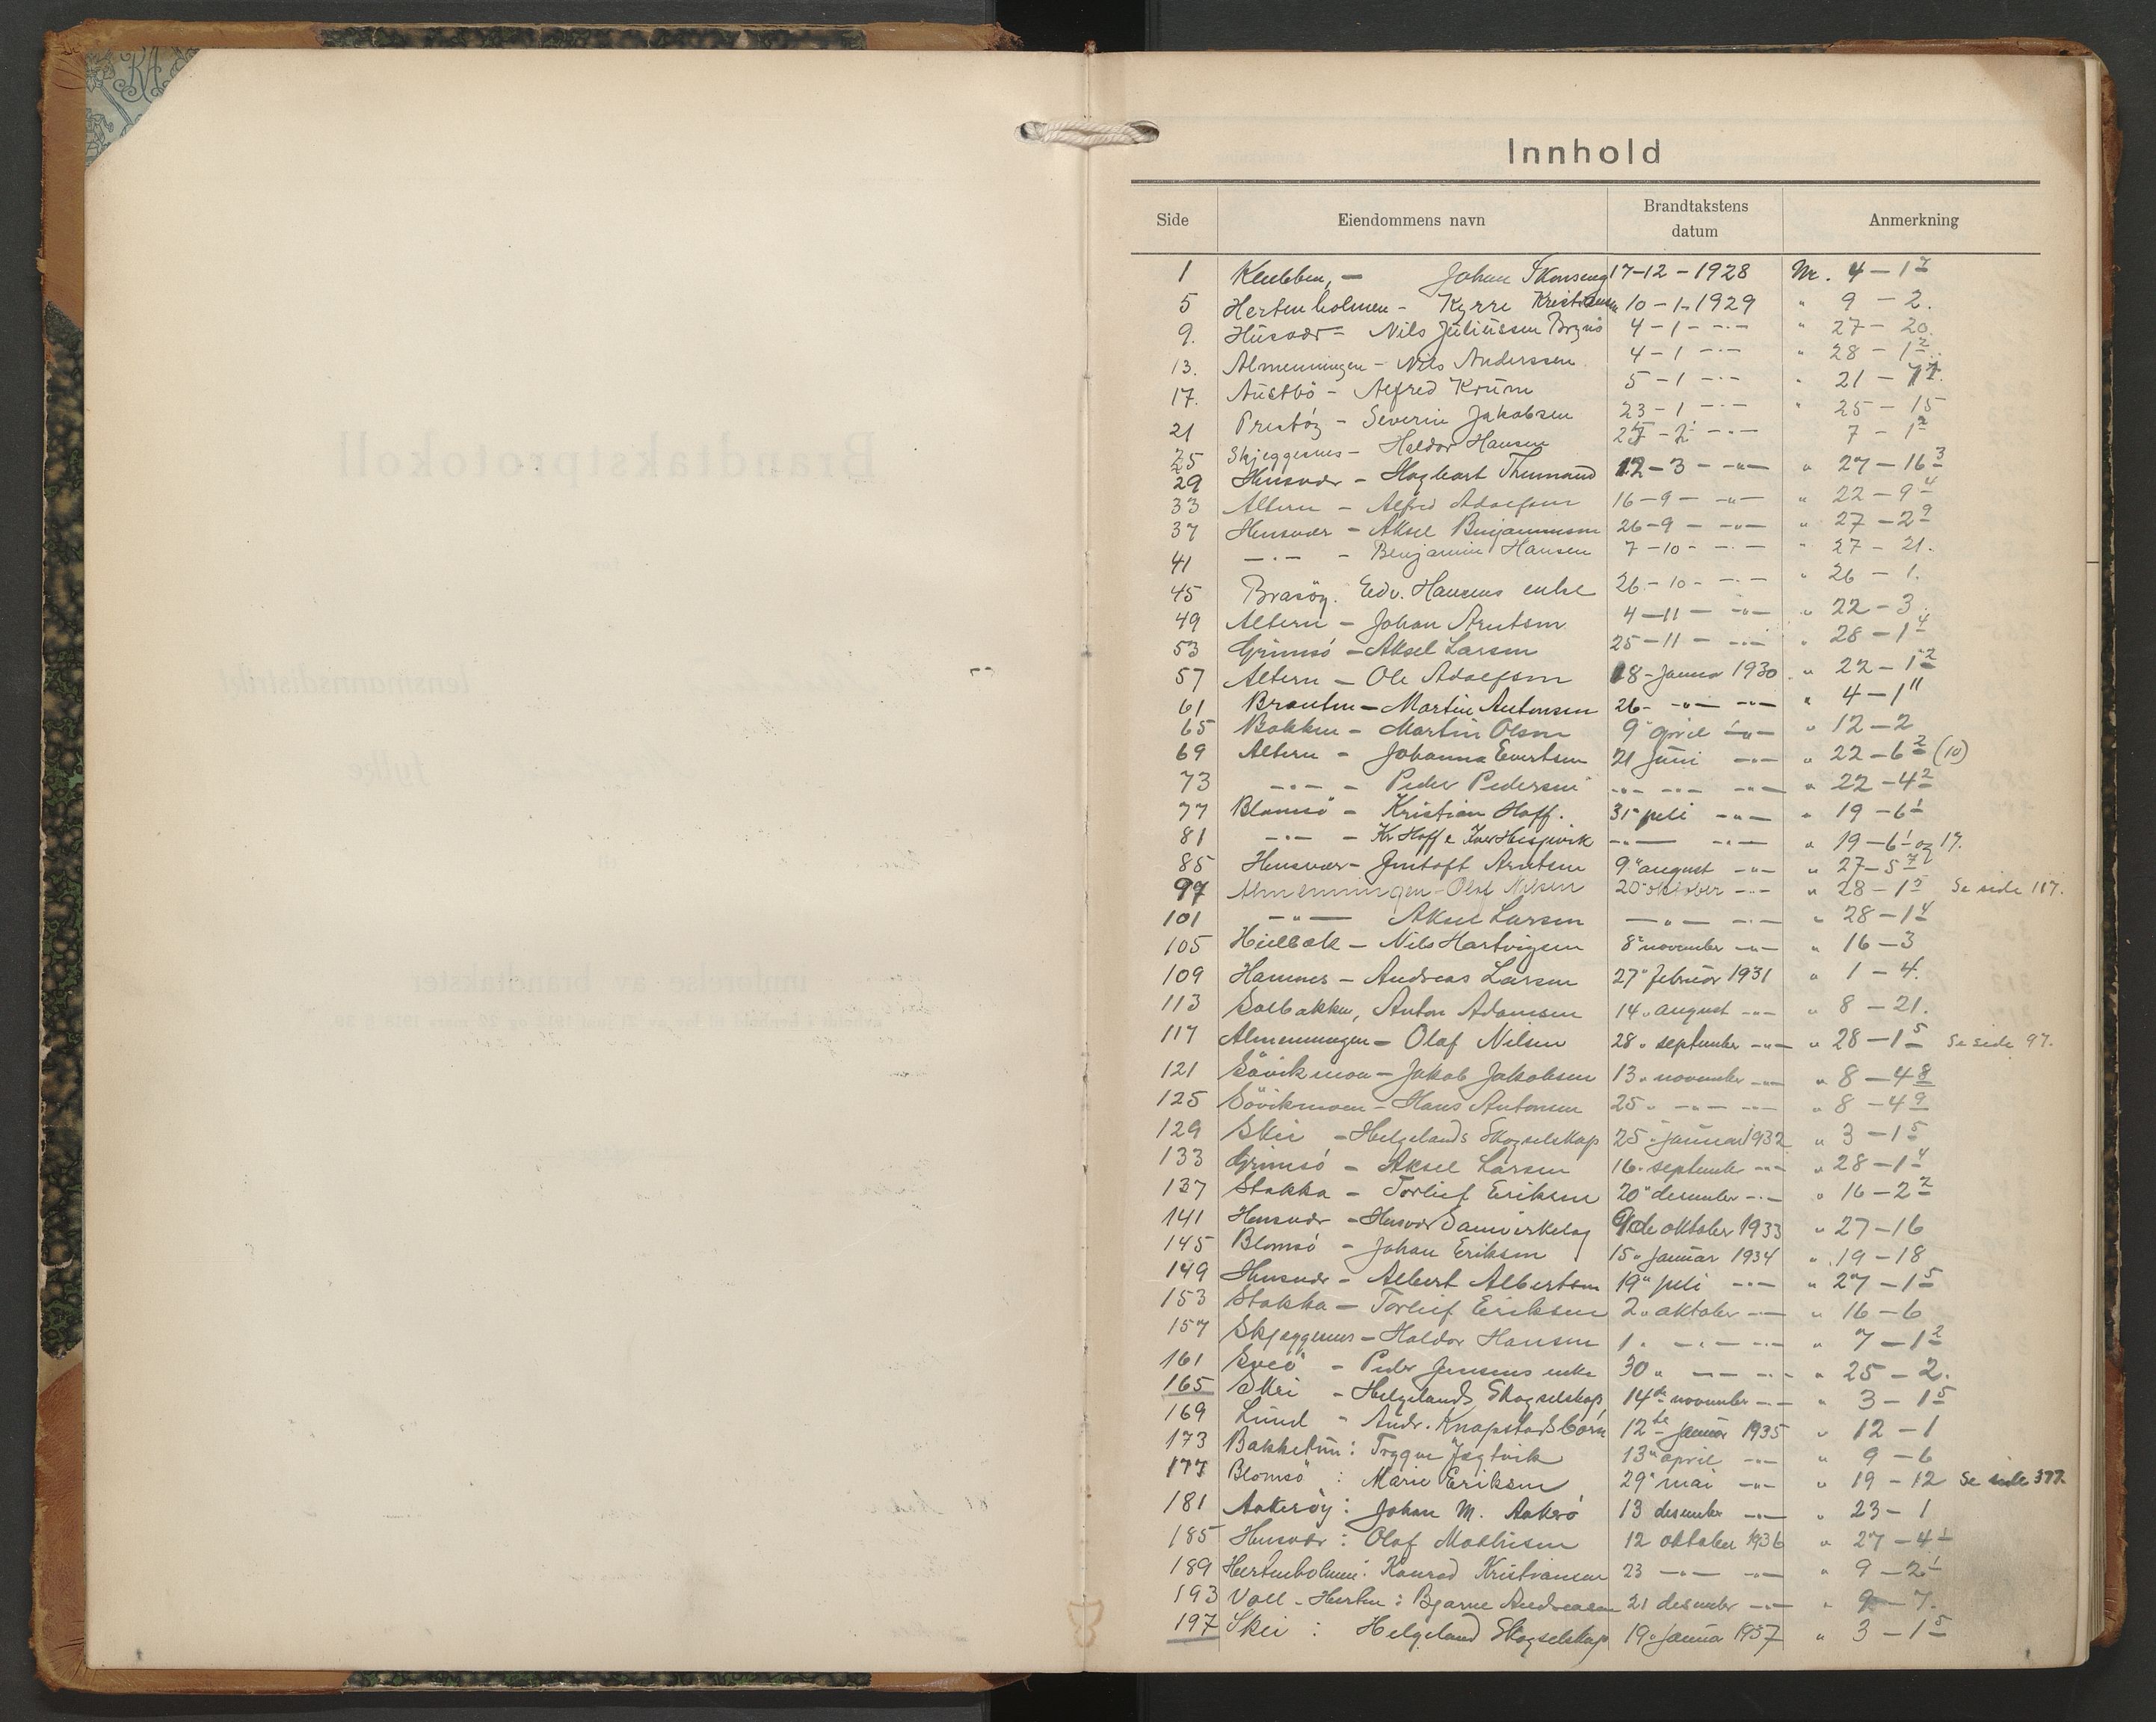 Innhold
Side Eiendommens navn Brandtakstens datum Anmerkning
1 Klubben, — Johan Skonseng 17-12-1928 Nr. 4-1
5 Hertenholmen - Kyrre Kristiansen 10-1-1929 " 9-2.
9. Husvær - Nils Juliussen 4-1 -"- " 27-20.
13. Almenningen - Nils Anderssen 4-1 -"- " 28-1²
17. Austbö - Alfred Krüm 5-1 -"- " 21-
21 Prestöy - Severin Jakobsen 23-1 -"- " 25-15
25 Skjeggesnes - Haldor Hansen -2 -"- 7-1²
29 Husvær - Hagbart 12-3 - -"- " 27-16³
33 Altern - Alfred Adolfsen 16-9- -"- " 22-9⁴
37 Husvær - Aksel Benjaminsen 26-9 - -"- " 27-2⁹
41 -"- - Benjamin Hansen 7-10- -"- " 27-21.
45 Brasöy. Edv. Hansens enke 26-10- -"- " 26-1.
49 Altern - Johan Arntsen 4-11- -"- " 22-3.
53 Grimsö - Aksel Larsen 25-11- -"- " 28-1⁴
57 Altern - Ole Adolfsen 18-Januar 1930 " 22-1²
61 Brauten - Martin Antonsen 26- -"- -"- " 4-1¹¹
65 Bakken - Martin Olsen 9" april -"- " 12-2
69 Altern - Johanna Evertsen 21 juni -"- " 22-6² (10)
73 -"- - Peder Pedersen -"- -"- -"- " 22-4²
77 Blomsö - Kristian Hoff. 31" juli -"- " 19-6¹
81 -"- - Kr Hoff & Iver -"- -"- " 19-6¹ og 17.
85 Husvær - Arntsen 9" august -"- " 27-5⁷
97 Almenningen - Olaf Nilsen 20" oktober -"- " 28-1⁵ Se side 117.
101 -"- Aksel Larsen -"- -"- " 28-1⁴
105 - Nils Hartvigsen 8" november -"- " 16-3
109 Hamnes - Andreas Larsen 27" februar 1931 " 1-4.
113 Solbakken, Anton Adamsen 14" august -"- " 8-21.
117 Almenningen - Olaf Nilsen 28" september -"- " 28-1⁵ Se side 97.
121 Sövikmoen - Jakob Jakobsen 13" november -"- " 8-4⁸
125 Sövikmoen - Hans Antonsen 25" -"- -"- " 8-4⁹
129 Skei - Helgelands Skogselskap 25" januar 1932 " 3-1⁵
133 Grimsö - Aksel Larsen 16" september -"- " 28-1⁴
137 Stokka - Torleif Eriksen 20" desember -"- " 16-2²
141 Husvær - Husvær Samvirkelag de oktober 1933 " 27-16
145 Blomsö - Johan Eriksen 15" januar 1934 " 19-18
149 Husvær - Albert Albertsen 19" juli -"- " 27-1⁵
153 Stokka - Torleif Eriksen 2" oktober -"- " 16-6
157 Skjeggesnes - Haldor Hansen 1" -"- -"- " 7-1²
161 - Peder Jensens enke 30" -"- -"- " 25-2.
165 Skei - Helgelands Skogselskap, 14de november -"- " 3-1⁵
169 Lund - Andr. Knapstads börn 12te januar 1935 " 12-1
173 Bakketun: Trygve Jegtvik 13" april -"- " 9-6
177 Blomsö : Marie Eriksen 29" mai -"- " 19-12 Se side 377.
181 Aakeröy: Johan M. Aakerö 13 desember -"- " 23-1
185 Husvær : Olaf Mathisen 12 oktober 1936 " 27-4¹
189 Hertenholmen: Konrad Kristiansen 23 -"- -"- " 9-2¹
193 Voll - Herten : Bjarne Andreasen 21 desember -"- " 9-7.
197 Skei : Helgeland Skogselskap 19" januar 1937 " 3-1⁵